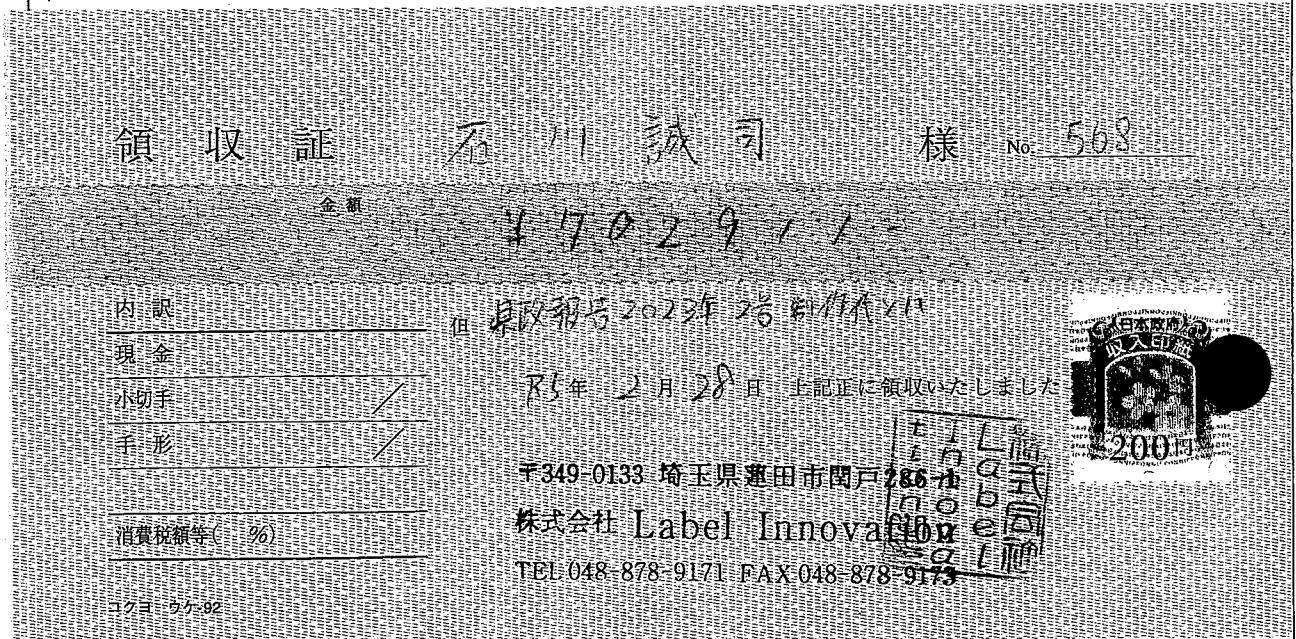 領収証 石川誠司 様 No. 568
金額
¥702911-
内訳
現金
小切手
手形
消費税額等( %)
コクヨ ウケ-92
但 県政報告2023年2号制作代として
R5年 2月 28日 上記正に領収いたしました
〒349-0133 埼玉県蓮田市閏戸286-1
株式会社 Label Innovation
TEL 048-878-9171 FAX 048-878-9173
株式会社
Label
Inno
日本政府
収入印紙
200円